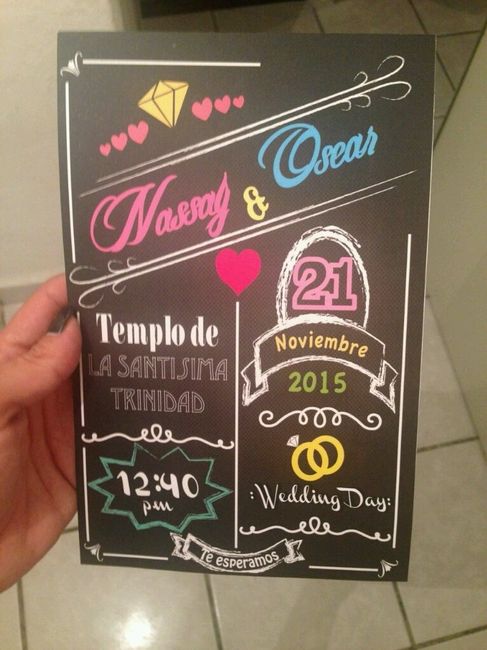 Nassag & Oscar
Templo de
LA SANTISIMA
TRINIDAD
12:40
pm
21
Noviembre
2015
:Wedding Day:
Te esperamos